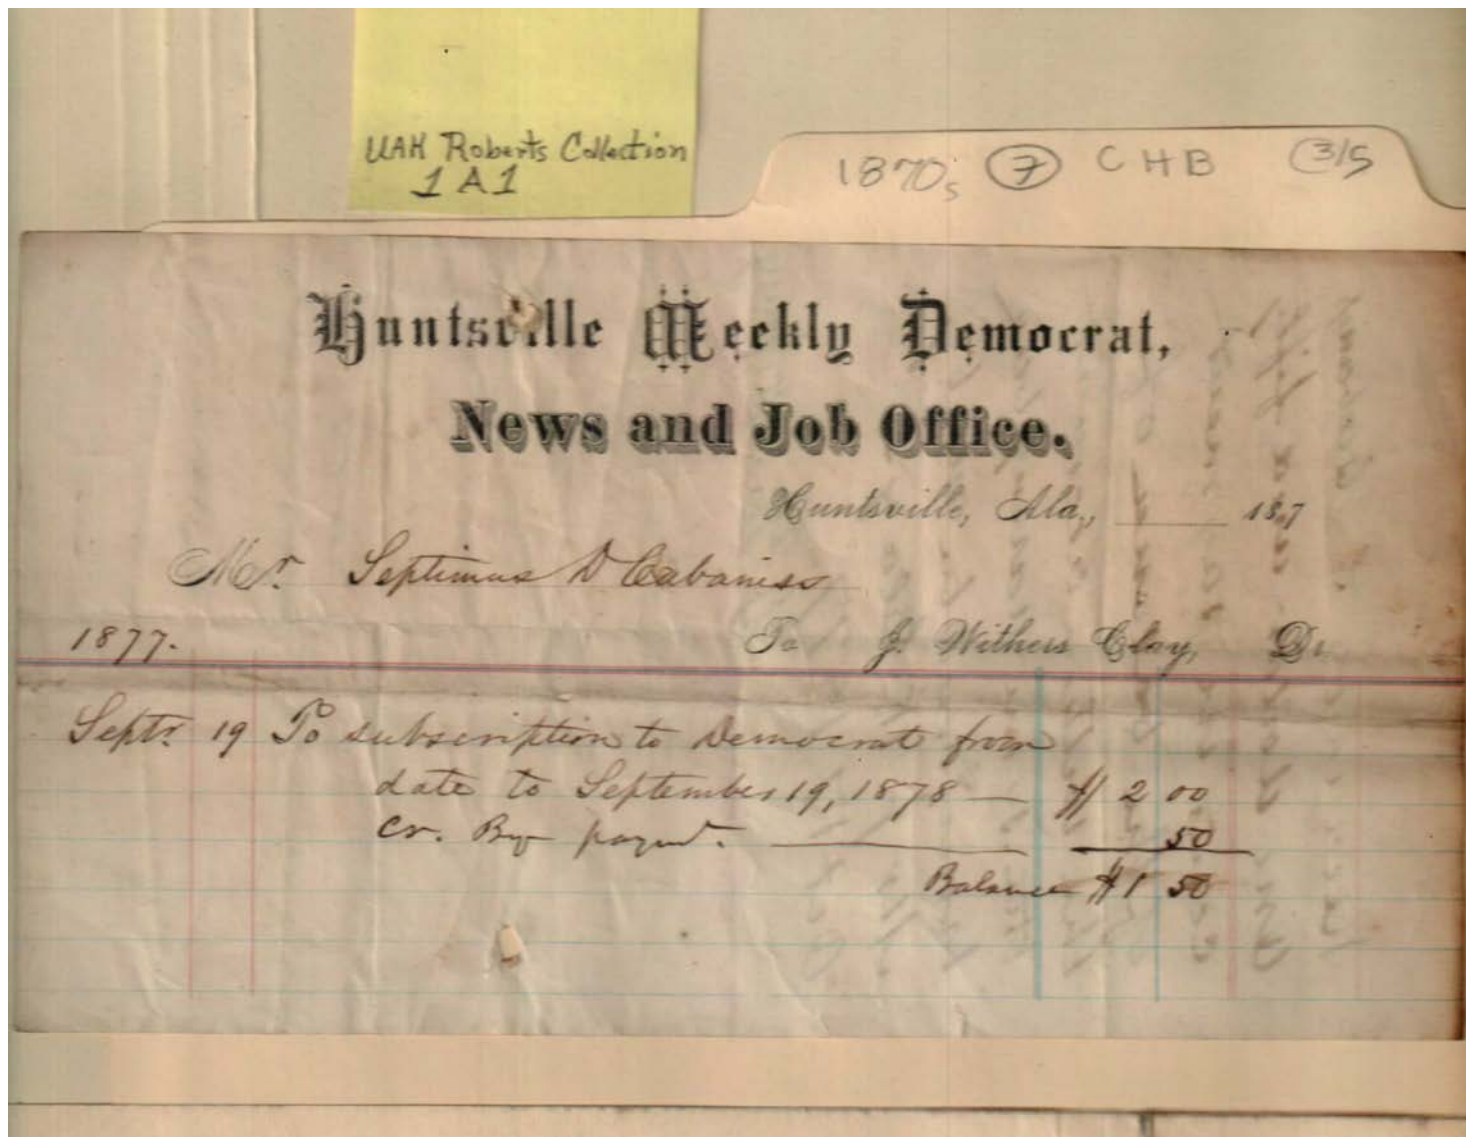 UAH Roberts Collection
1A1
1870s 7 CHB 3/5
Huntsville Weekly Democrat,
News and Job Office.
Huntsville, Ala., 187
Mr. Septimus D Cabaniss
1877.
To J. Withers Clay, Dr.
Septr. 19 To subscription to Democrat from
date to September 19, 1878 — $ 2 00
Cr. By paymt. 50
Balance $ 1 50